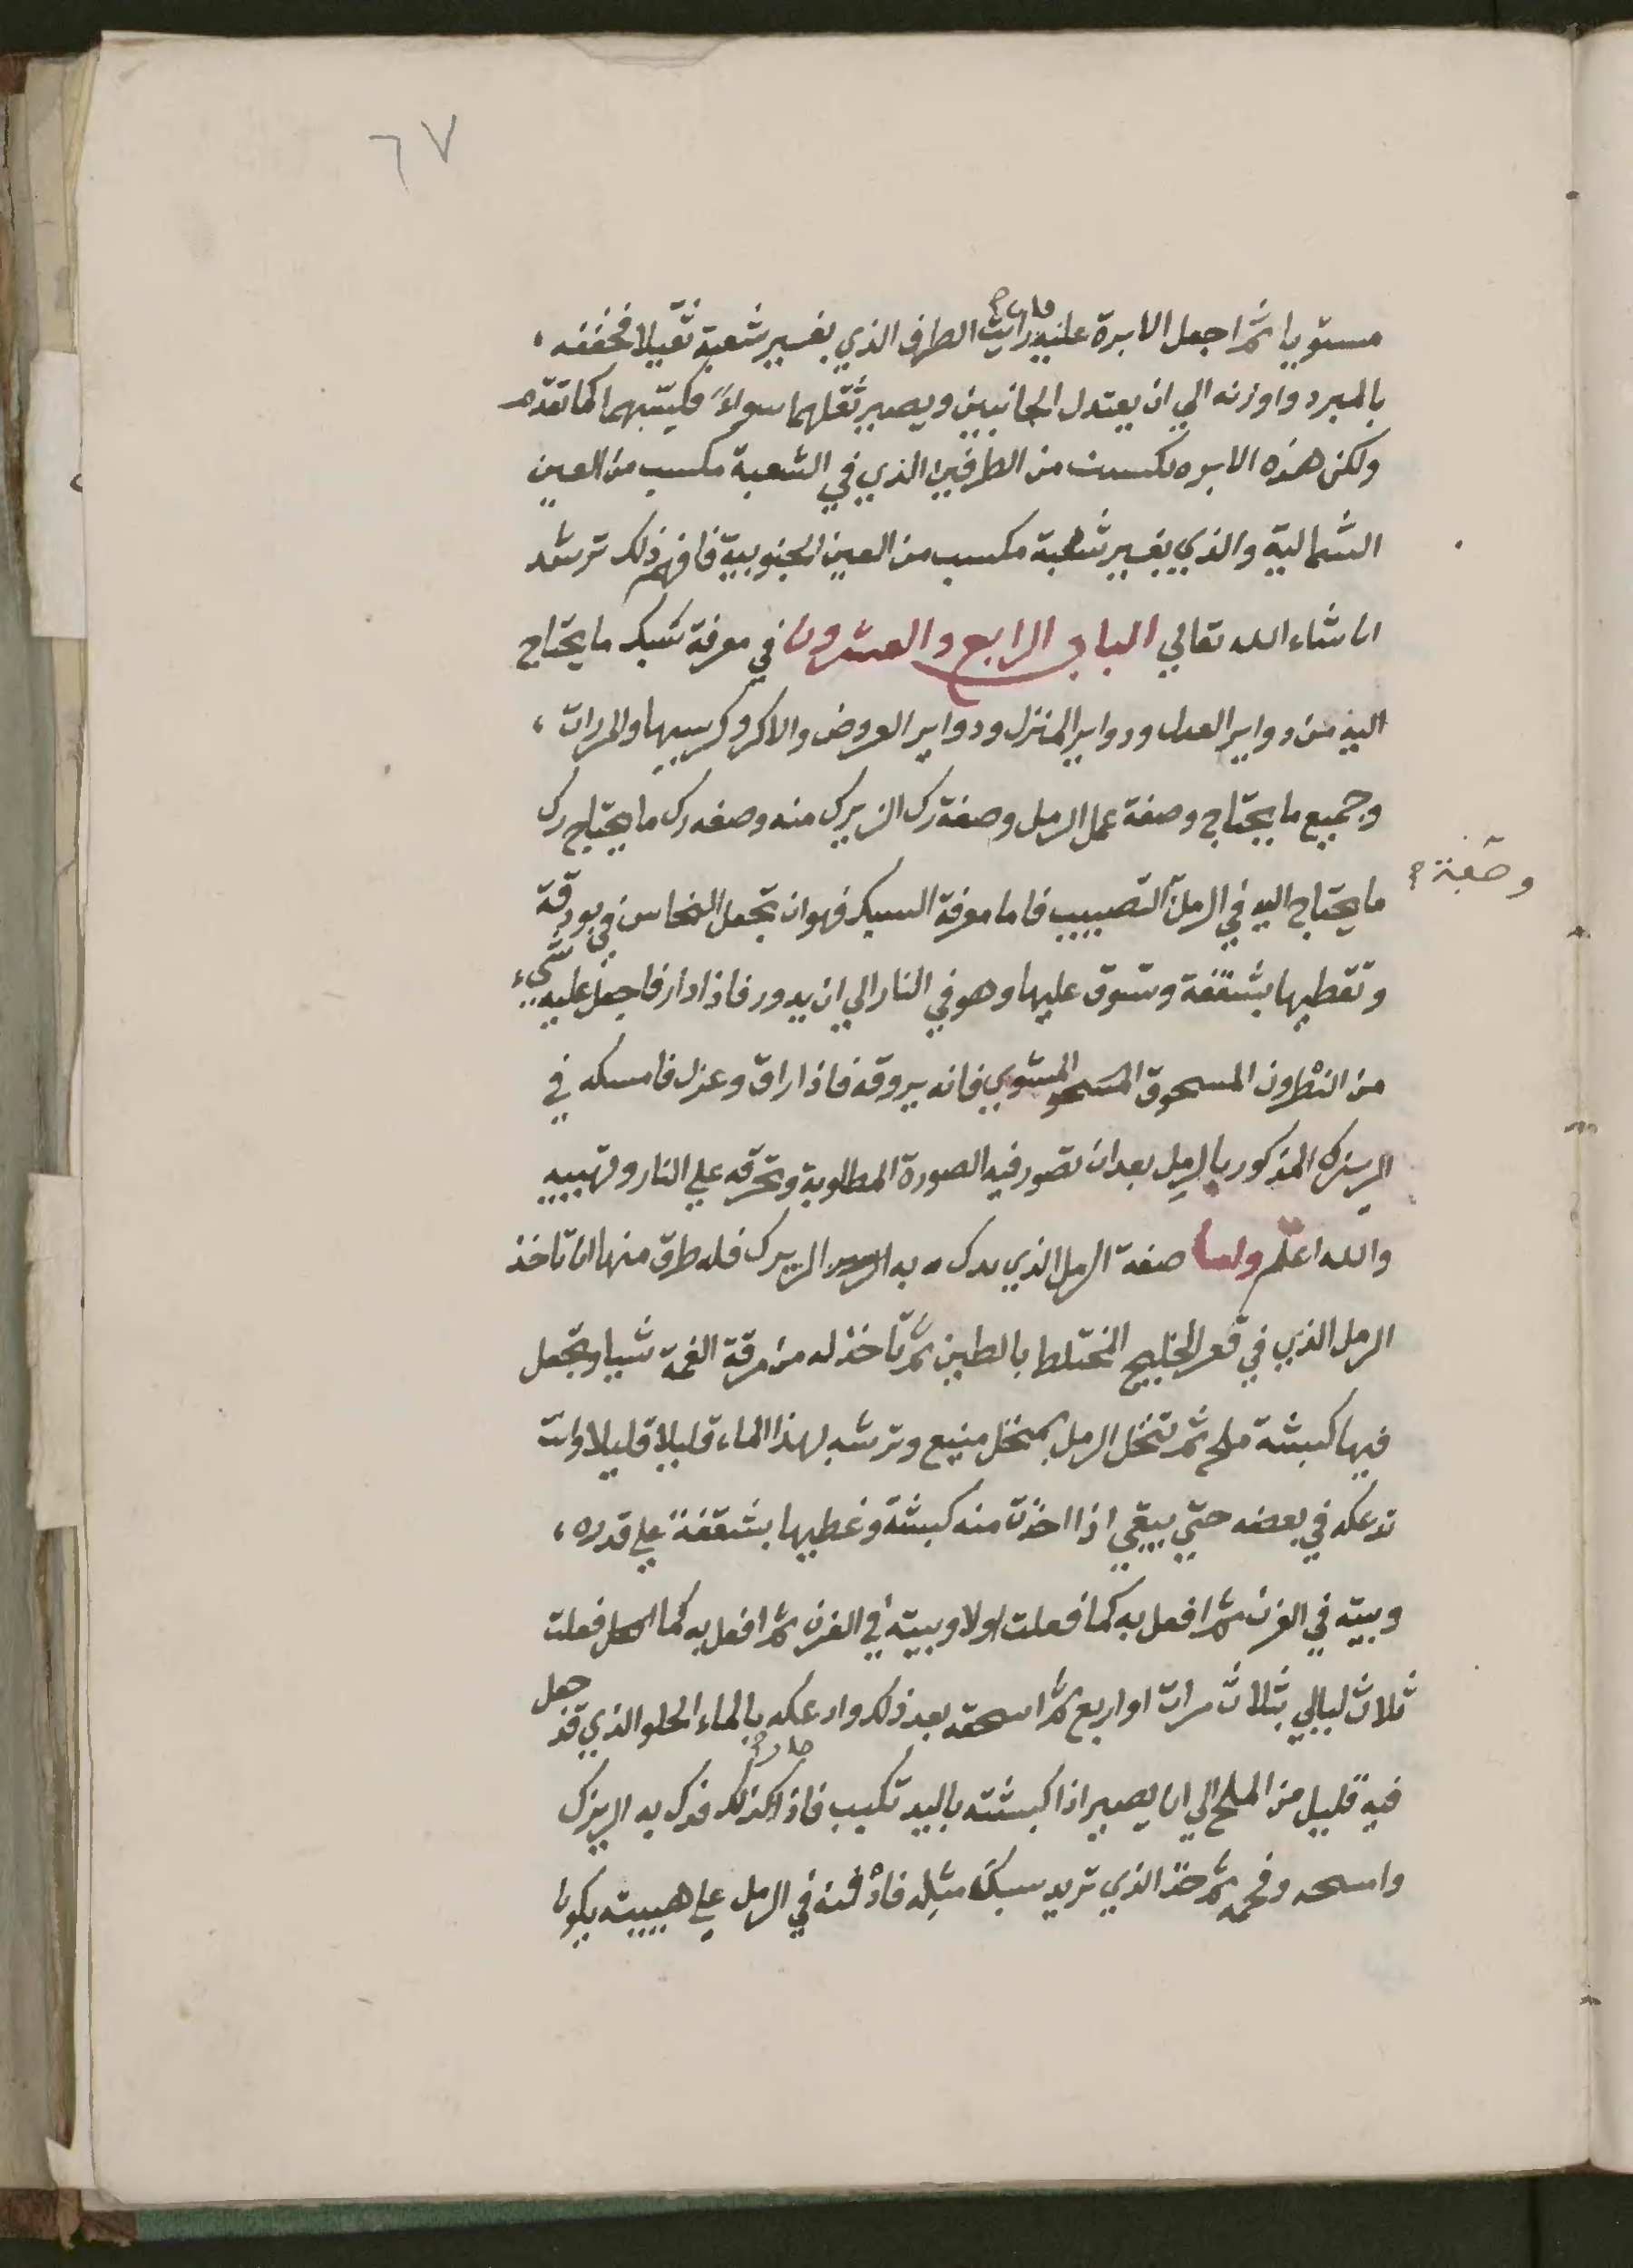 ٦٧
مستويا ثم اجعل الابرة عليه فان رايت الطرف الذي بغير شعبة ثقيلا فخففه
بالمبرد واوزنه الي ان يعتدل الجانبين ويصير ثقلهما سواءً فكيّبهما كما تقدّم
ولكن هذه الابره تكسب من الطرفين الذي في الشعبة مكسب من العين
الشمالية والذي بغير شعبة مكسب من العين الجنوبية فافهم ذلك ترشد
ان شاء الله تعالي الباب الرابع والعشرون في معرفة سبك ما يحتاج
اليه من دواير العدل ودواير المنزل ودواير العروض والاكر وكرسيها والمرات
وجميع ما يحتاج وصفة عمل الرمل وصفة رك الزيرك منه وصفه رك ما يحتاج رك
وصفة
ما يحتاج اليه في الرمل التصبيب فاما معرفة السبك فهو ان تجعل النحاس في بودقة
وتغطيها بشقفة وتسوق عليها وهو في النار الي ان يدور فاذا دار فاجعل عليه شيء
من النطرون المسحوق المشوي فانه يروقه فاذا راق وعزل فامسكه في
الريزك المذكور بالرمل بعد ان تصور فيه الصورة المطلوبة وتحرقه علي النار وتهببه
والله اعلم واما صفة الرمل الذي يدك به الزيرك فله طرق منها ان تاخذ
الرمل الذي في قعر الخليج المختلط بالطين ثم تاخذ له من مرقة الغمة شيا وتجعل
فيها كبشة ملح ثم تنخل الرمل بمنخل منيع وترشه بهذا الماء قليلا قليلا وانت
تدعكه في بعضه حتي يبقي اذا اخذت منه كبشة وغطيها بشقفة علي قدره
وبيته في الفرن ثم افعل به كما فعلت اولا وبيته في الفرن ثم افعل به كما فعلت
ثلاث ليالي بثلاث مرات او اربع ثم اسحقه بعد ذلك وادعكه بالماء الحلو الذي قد جعل
فيه قليل من الملح الي ان يصير اذا كبشته باليد تكبب فاذا صار كذلك فدك به الريزك
وامسحه وفحمه ثم خذ الذي تريد سبك مثله فادفنه في الرمل علي هيبته يكون